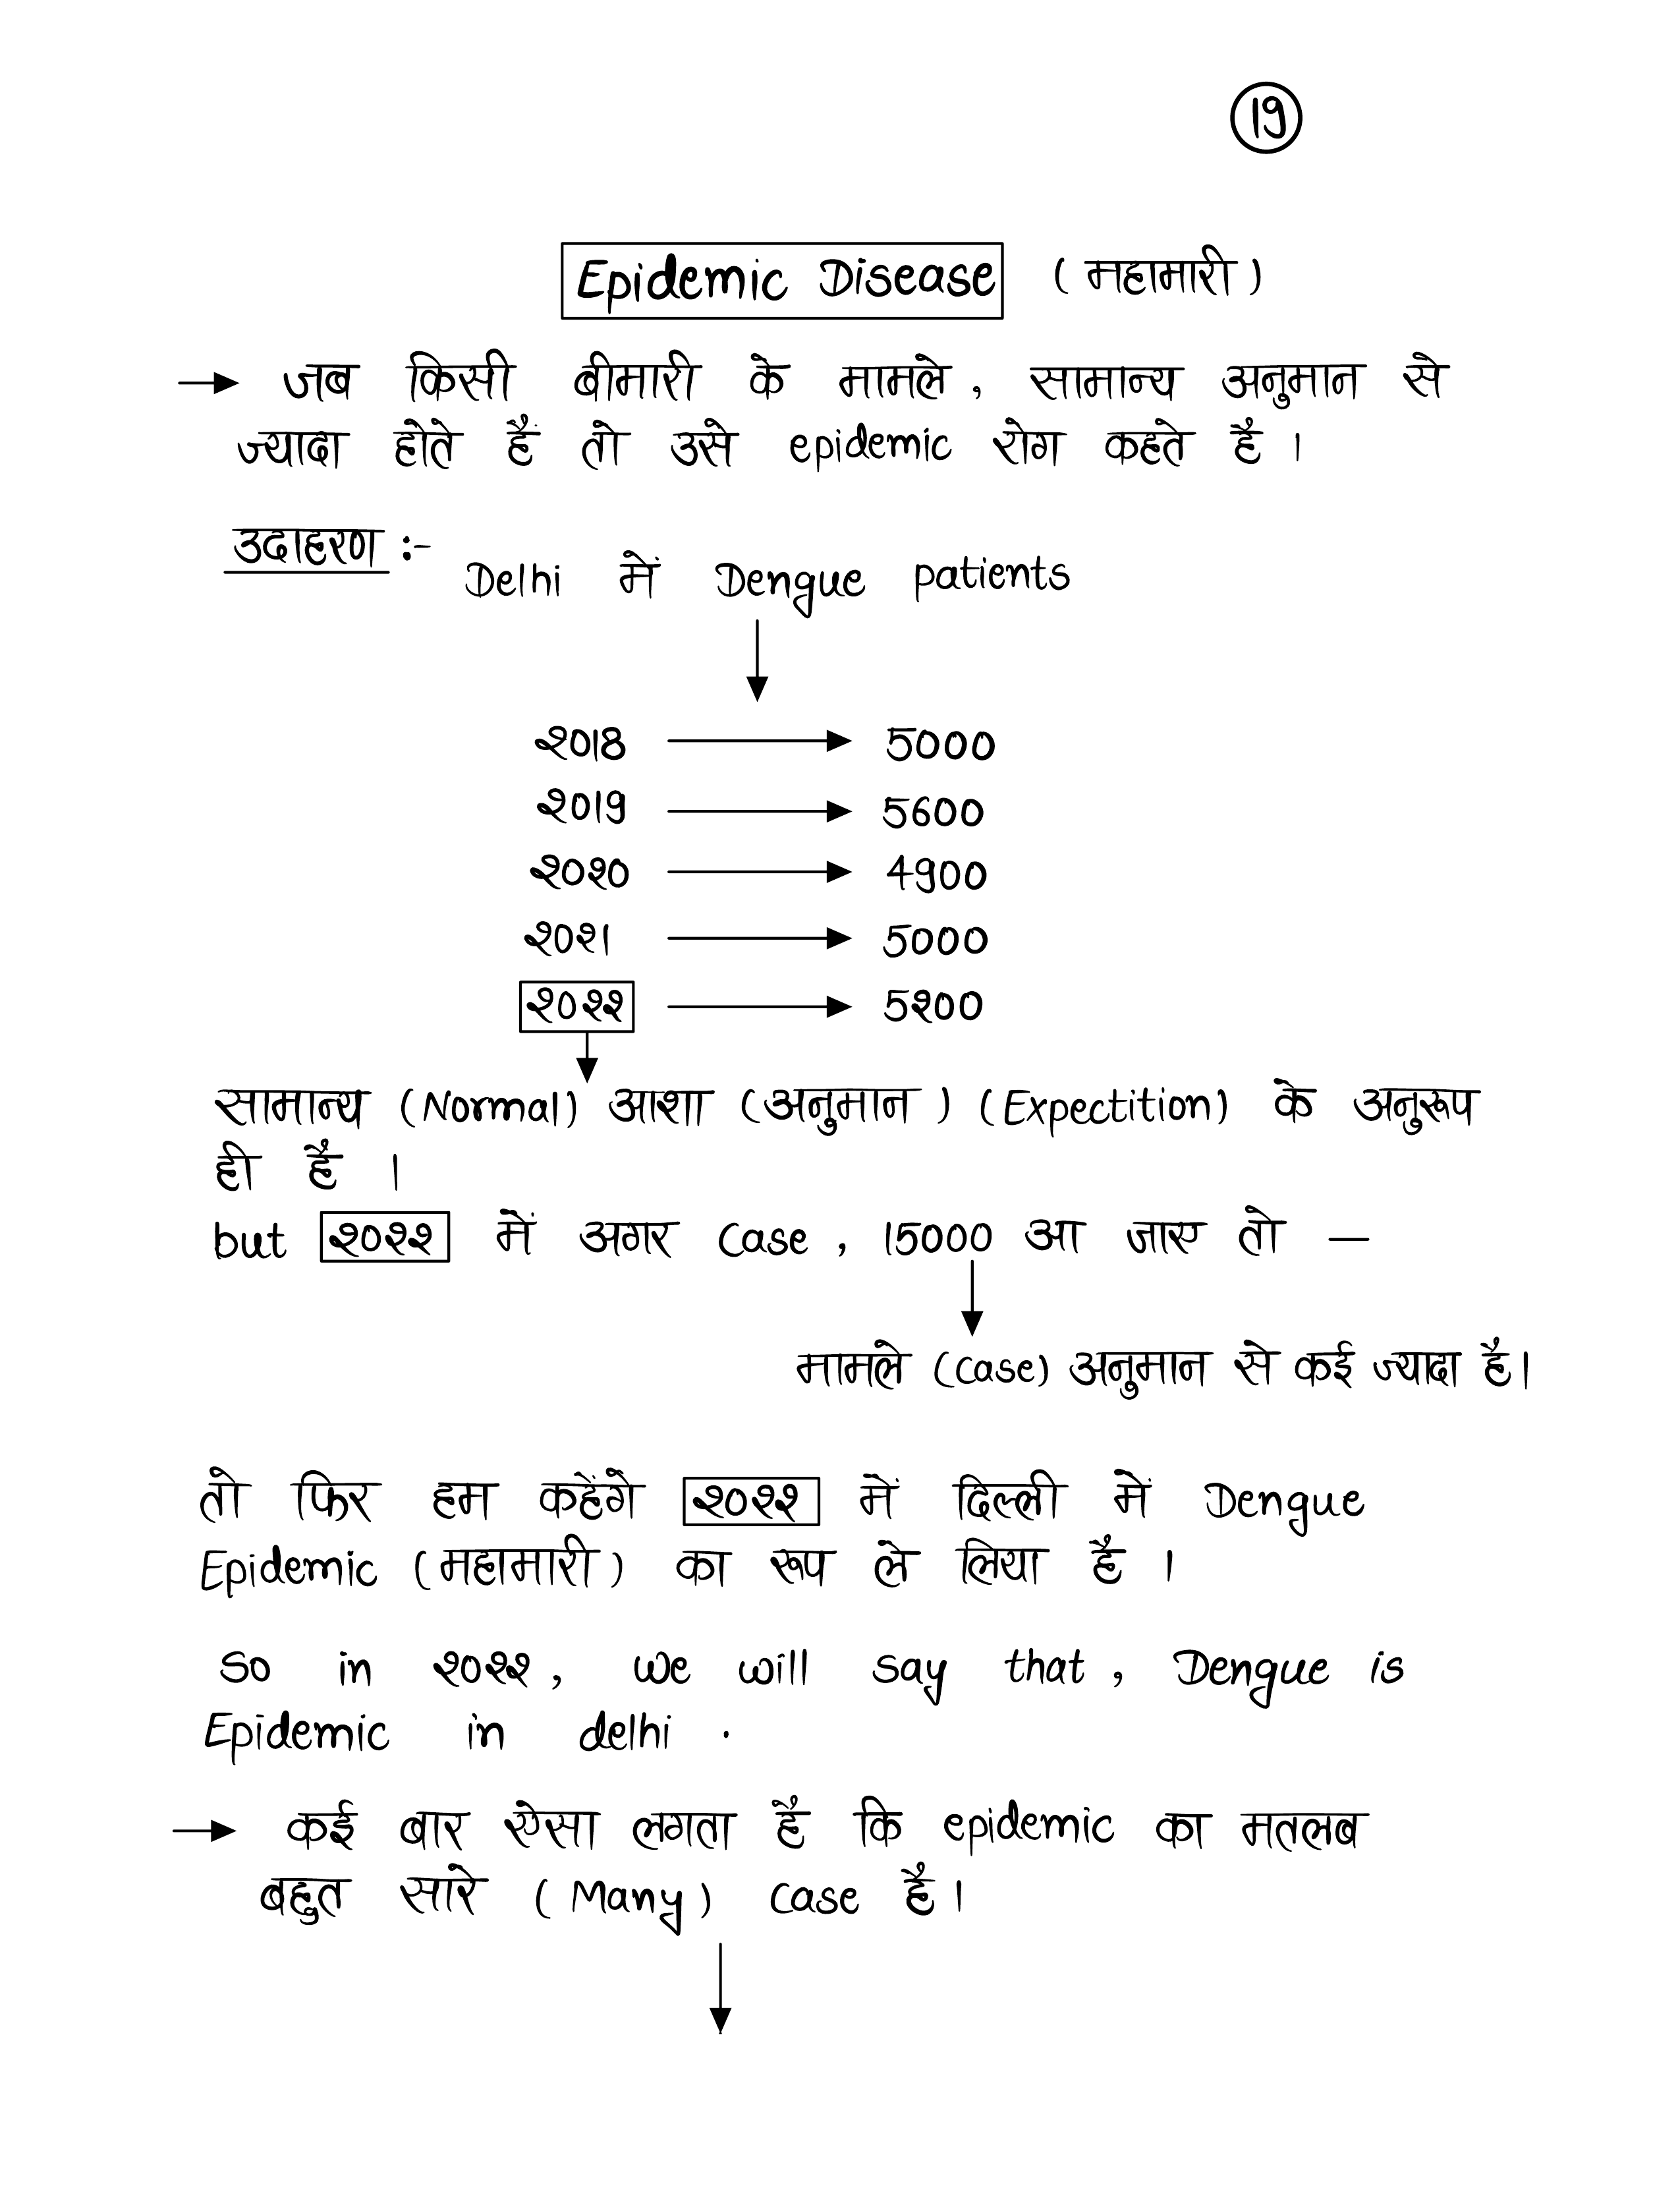 19
Epidemic Disease (महामारी)
→ जब किसी बीमारी के मामले, सामान्य अनुमान से
ज्यादा होते हैं तो उसे epidemic रोग कहते है ।
उदाहरण :-
Delhi में Dengue patients
2018 → 5000
2019 → 5600
2020 → 4900
2021 → 5000
2022 → 5200
सामान्य (Normal) आशा (अनुमान) (Expectition) के अनुरूप
ही हैं ।
but 2022 में अगर Case, 15000 आ जाए तो —
मामले (Case) अनुमान से कई ज्यादा है।
तो फिर हम कहेंगे 2022 में दिल्ली में Dengue
Epidemic (महामारी) का रूप ले लिया है ।
So in 2022, we will say that, Dengue is
Epidemic in delhi .
→ कई बार ऐसा लगता हैं कि epidemic का मतलब
बहुत सारे (Many) Case हैं।